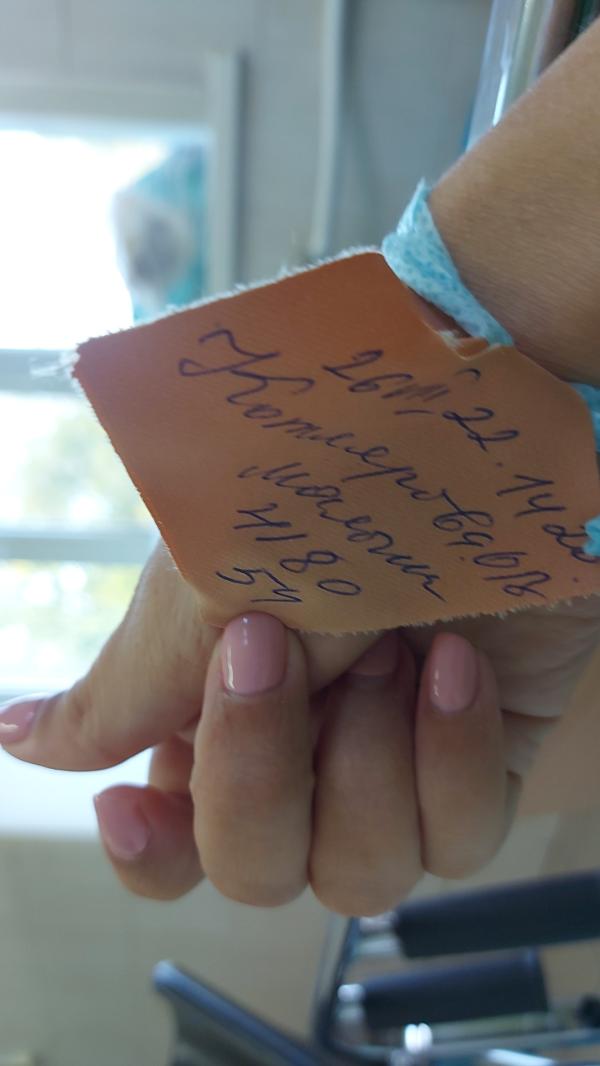 26 22. 14 20
Котлерова. О.В.
мальчик
4180
54